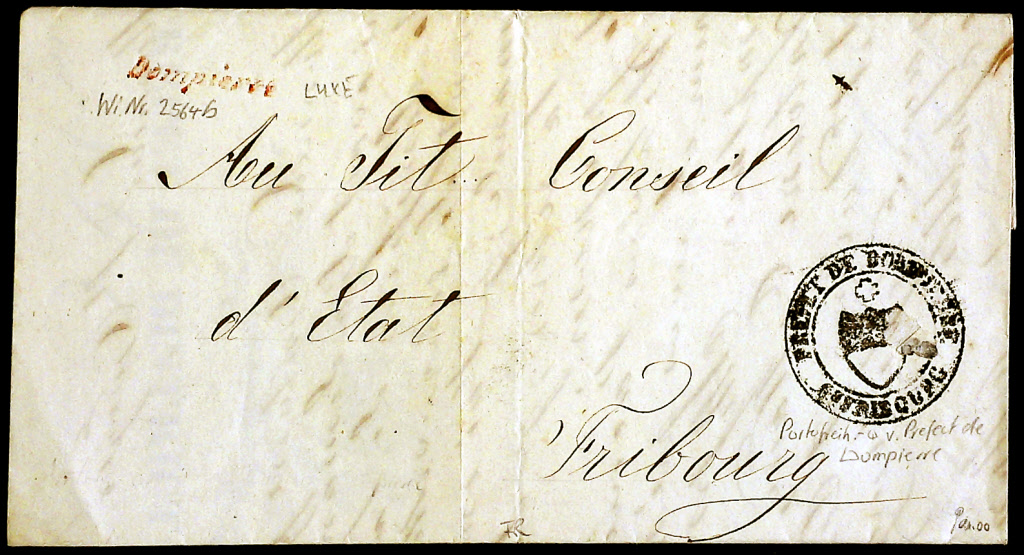 Dompierre LUXE
Wi Nr. 2564b
Au Tit Conseil
d' Etat
PREFET DE DOMPIERRE
FRIBOURG
Fribourg
Portofreih.- v. Prefect de
Dompierre